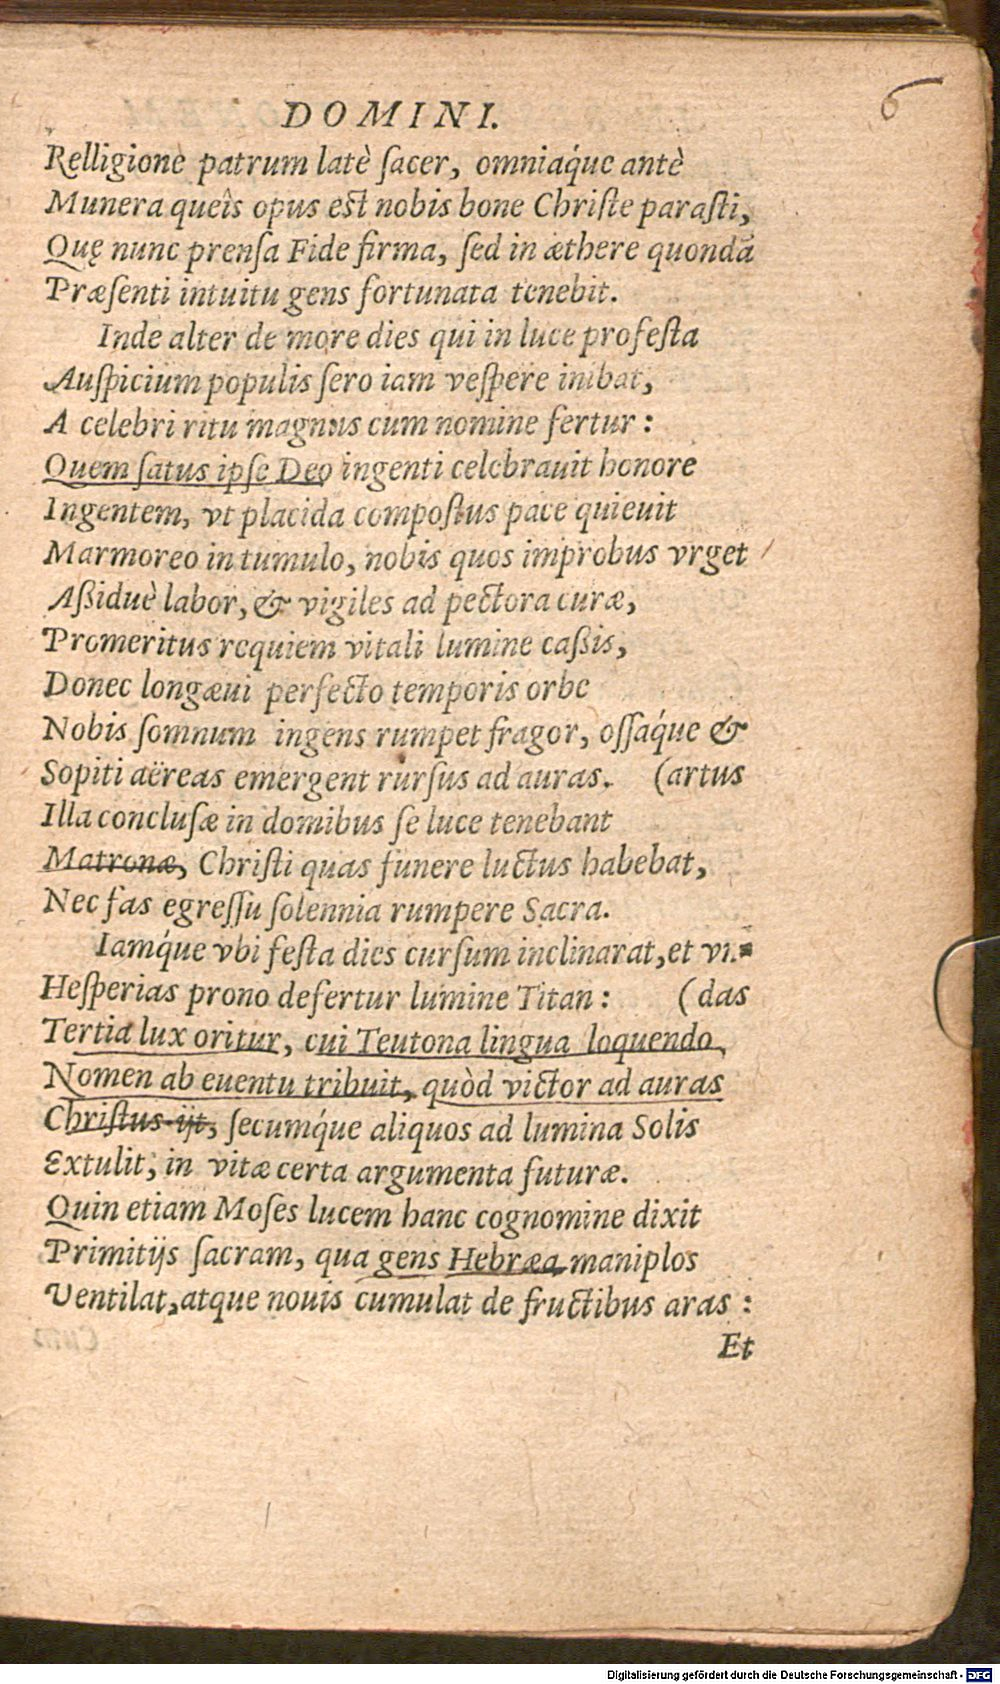 6
DOMINI.
Relligione patrum latè ſacer, omniaq́ue antè
Munera queîs opus eſt nobis bone Chriſte paraſti,
Quę nunc prenſa Fide firma, ſed in æthere quondā
Præſenti intuitu gens fortunata tenebit.
Inde alter de more dies qui in luce profeſta
Auſpicium populis ſero iam veſpere inibat,
A celebri ritu magnus cum nomine fertur:
Quem ſatus ipſe Deo ingenti celebrauit honore
Ingentem, vt placida compoſtus pace quieuit
Marmoreo in tumulo, nobis quos improbus vrget
Aßiduè labor, & vigiles ad pectora curæ,
Promeritus requiem vitali lumine caßis,
Donec longæui perfecto temporis orbe
Nobis ſomnum ingens rumpet fragor, oſſaq́ue &
Sopiti aëreas emergent rurſus ad auras. (artus
Illa concluſæ in domibus ſe luce tenebant
Matronæ, Chriſti quas funere luctus habebat,
Nec fas egreſſu ſolennia rumpere Sacra.
Iamq́ue vbi feſta dies curſum inclinarat, et vn-
Heſperias prono defertur lumine Titan: (das
Tertia lux oritur, cui Teutona lingua loquendo
Nomen ab euentu tribuit, quòd victor ad auras
Chriſtus ijt, ſecumq́ue aliquos ad lumina Solis
Extulit, in vitæ certa argumenta futuræ.
Quin etiam Moſes lucem hanc cognomine dixit
Primitijs ſacram, qua gens Hebræa maniplos
Ventilat, atque nouis cumulat de fructibus aras:
Et
Digitalisierung gefördert durch die Deutsche Forschungsgemeinschaft - DFG